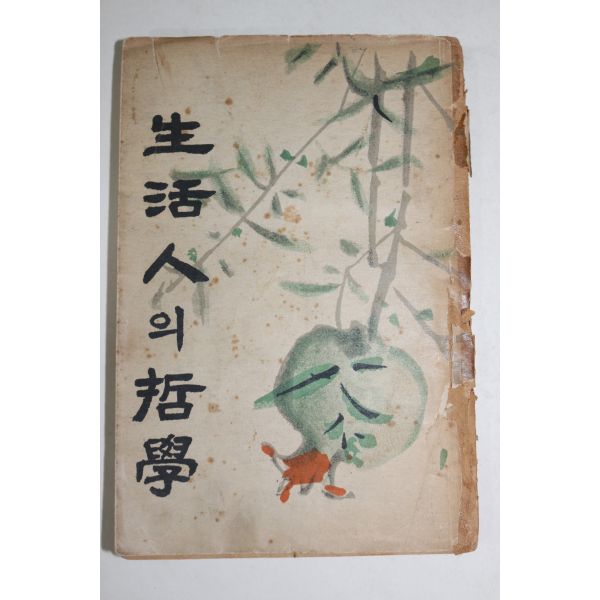 生活人의哲學